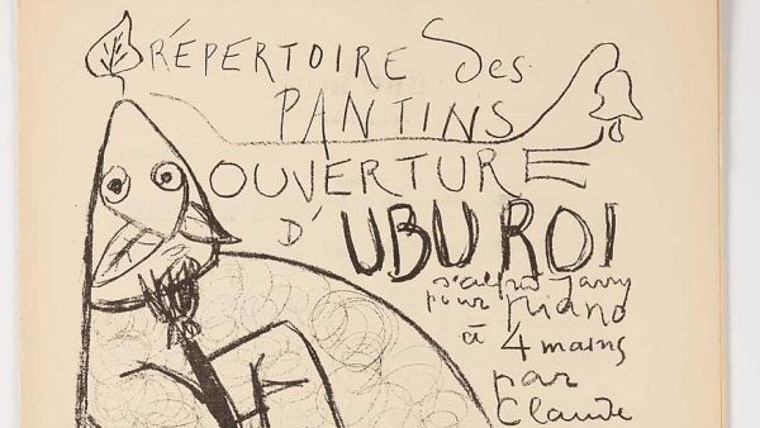 RÉPERTOIRE des
PANTINS
OUVERTURE
D'UBU ROI
d'alfred Jarry
pour piano
à 4 mains
par
Claude